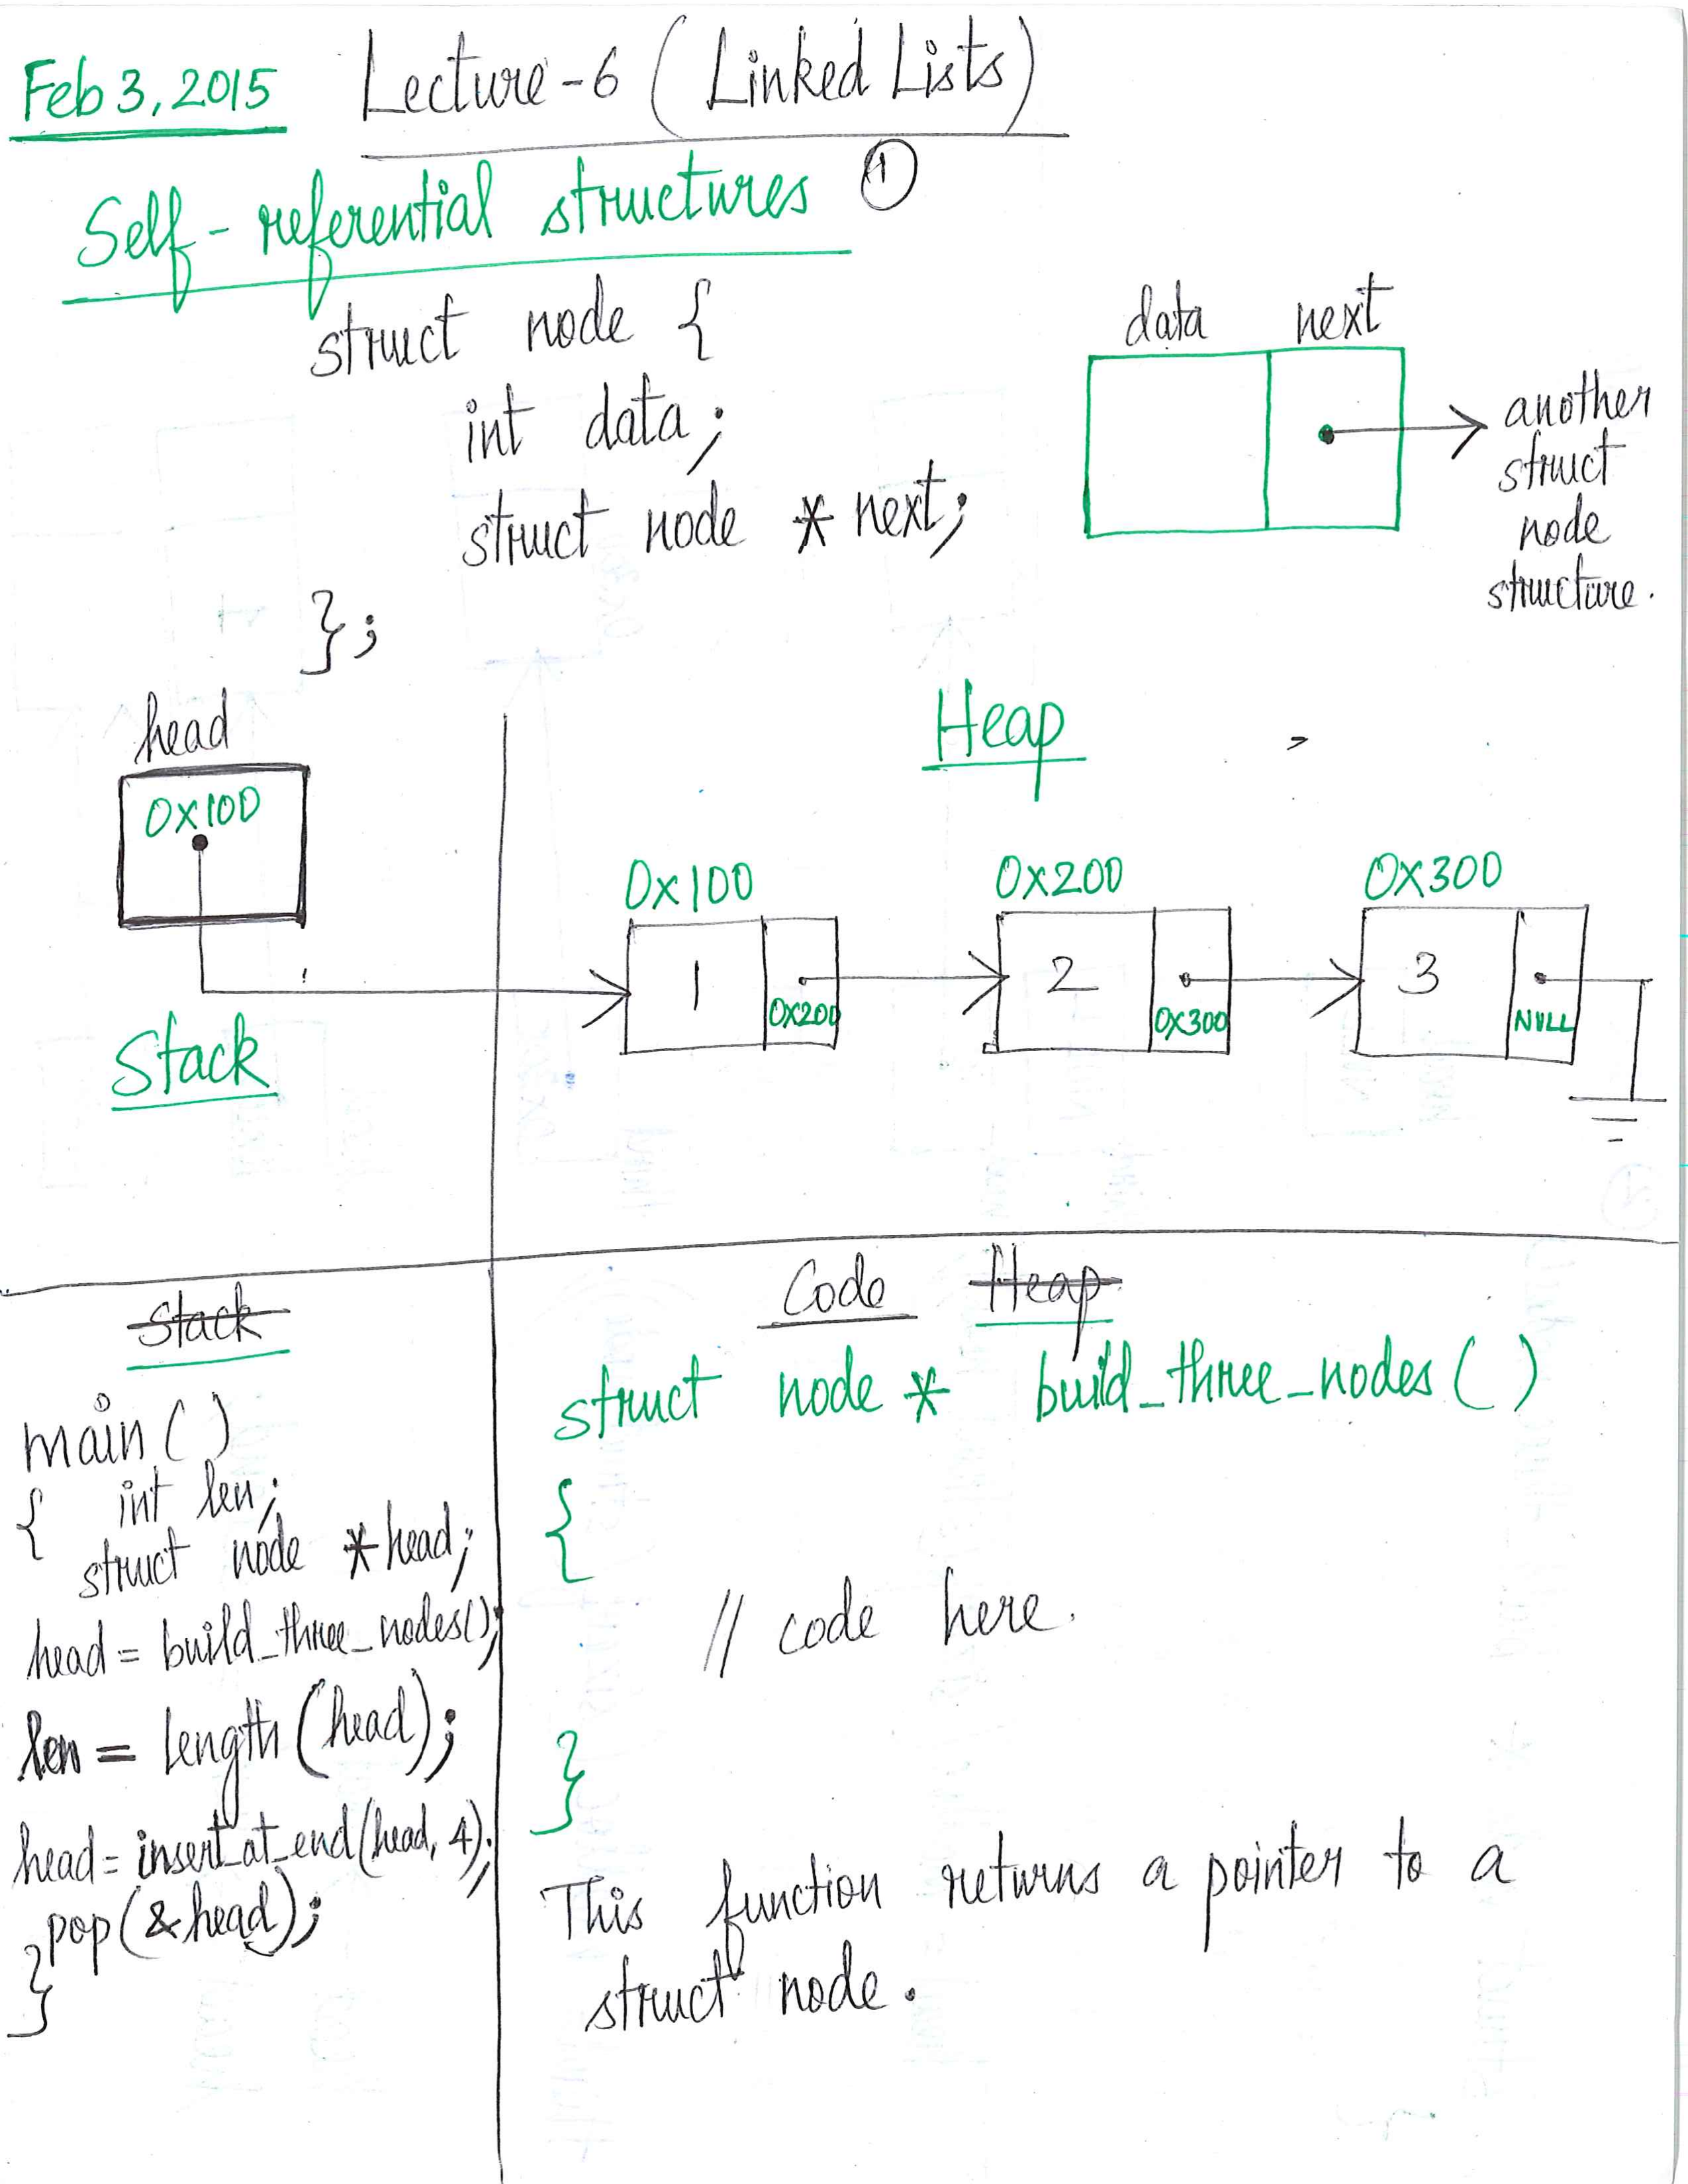 Feb 3, 2015 Lecture-6 (Linked Lists)
Self-referential structures ①
struct node {
int data;
struct node * next;
};
data next
another
struct
node
structure.
head
0x100
Stack
Heap
0x100 0x200 0x300
1 2 3
0x200 0x300 NULL
Stack
main()
{ int len;
struct node *head;
head = build_three_nodes();
len = length(head);
head = insert_at_end(head, 4);
pop(&head);
}
Code Heap
struct node * build_three_nodes()
{
// code here.
}
This function returns a pointer to a
struct node.